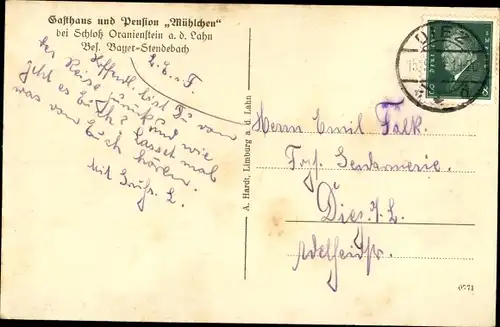 Gasthaus und Pension „Mühlchen"
bei Schloß Oranienstein a. d. Lahn
Bes. Bayer-Stendebach
L. E. u. T.
Hoffentl. bist Du von
der Reise zurück und wie
geht es Euch? Lasset mal
was von Euch hören.
Mit Gruß. L.
A. Hardt, Limburg a. d. Lahn
Herrn Emil Falk.
Diez. a/L.
Adelheidstr.
DIEZ
8
0571